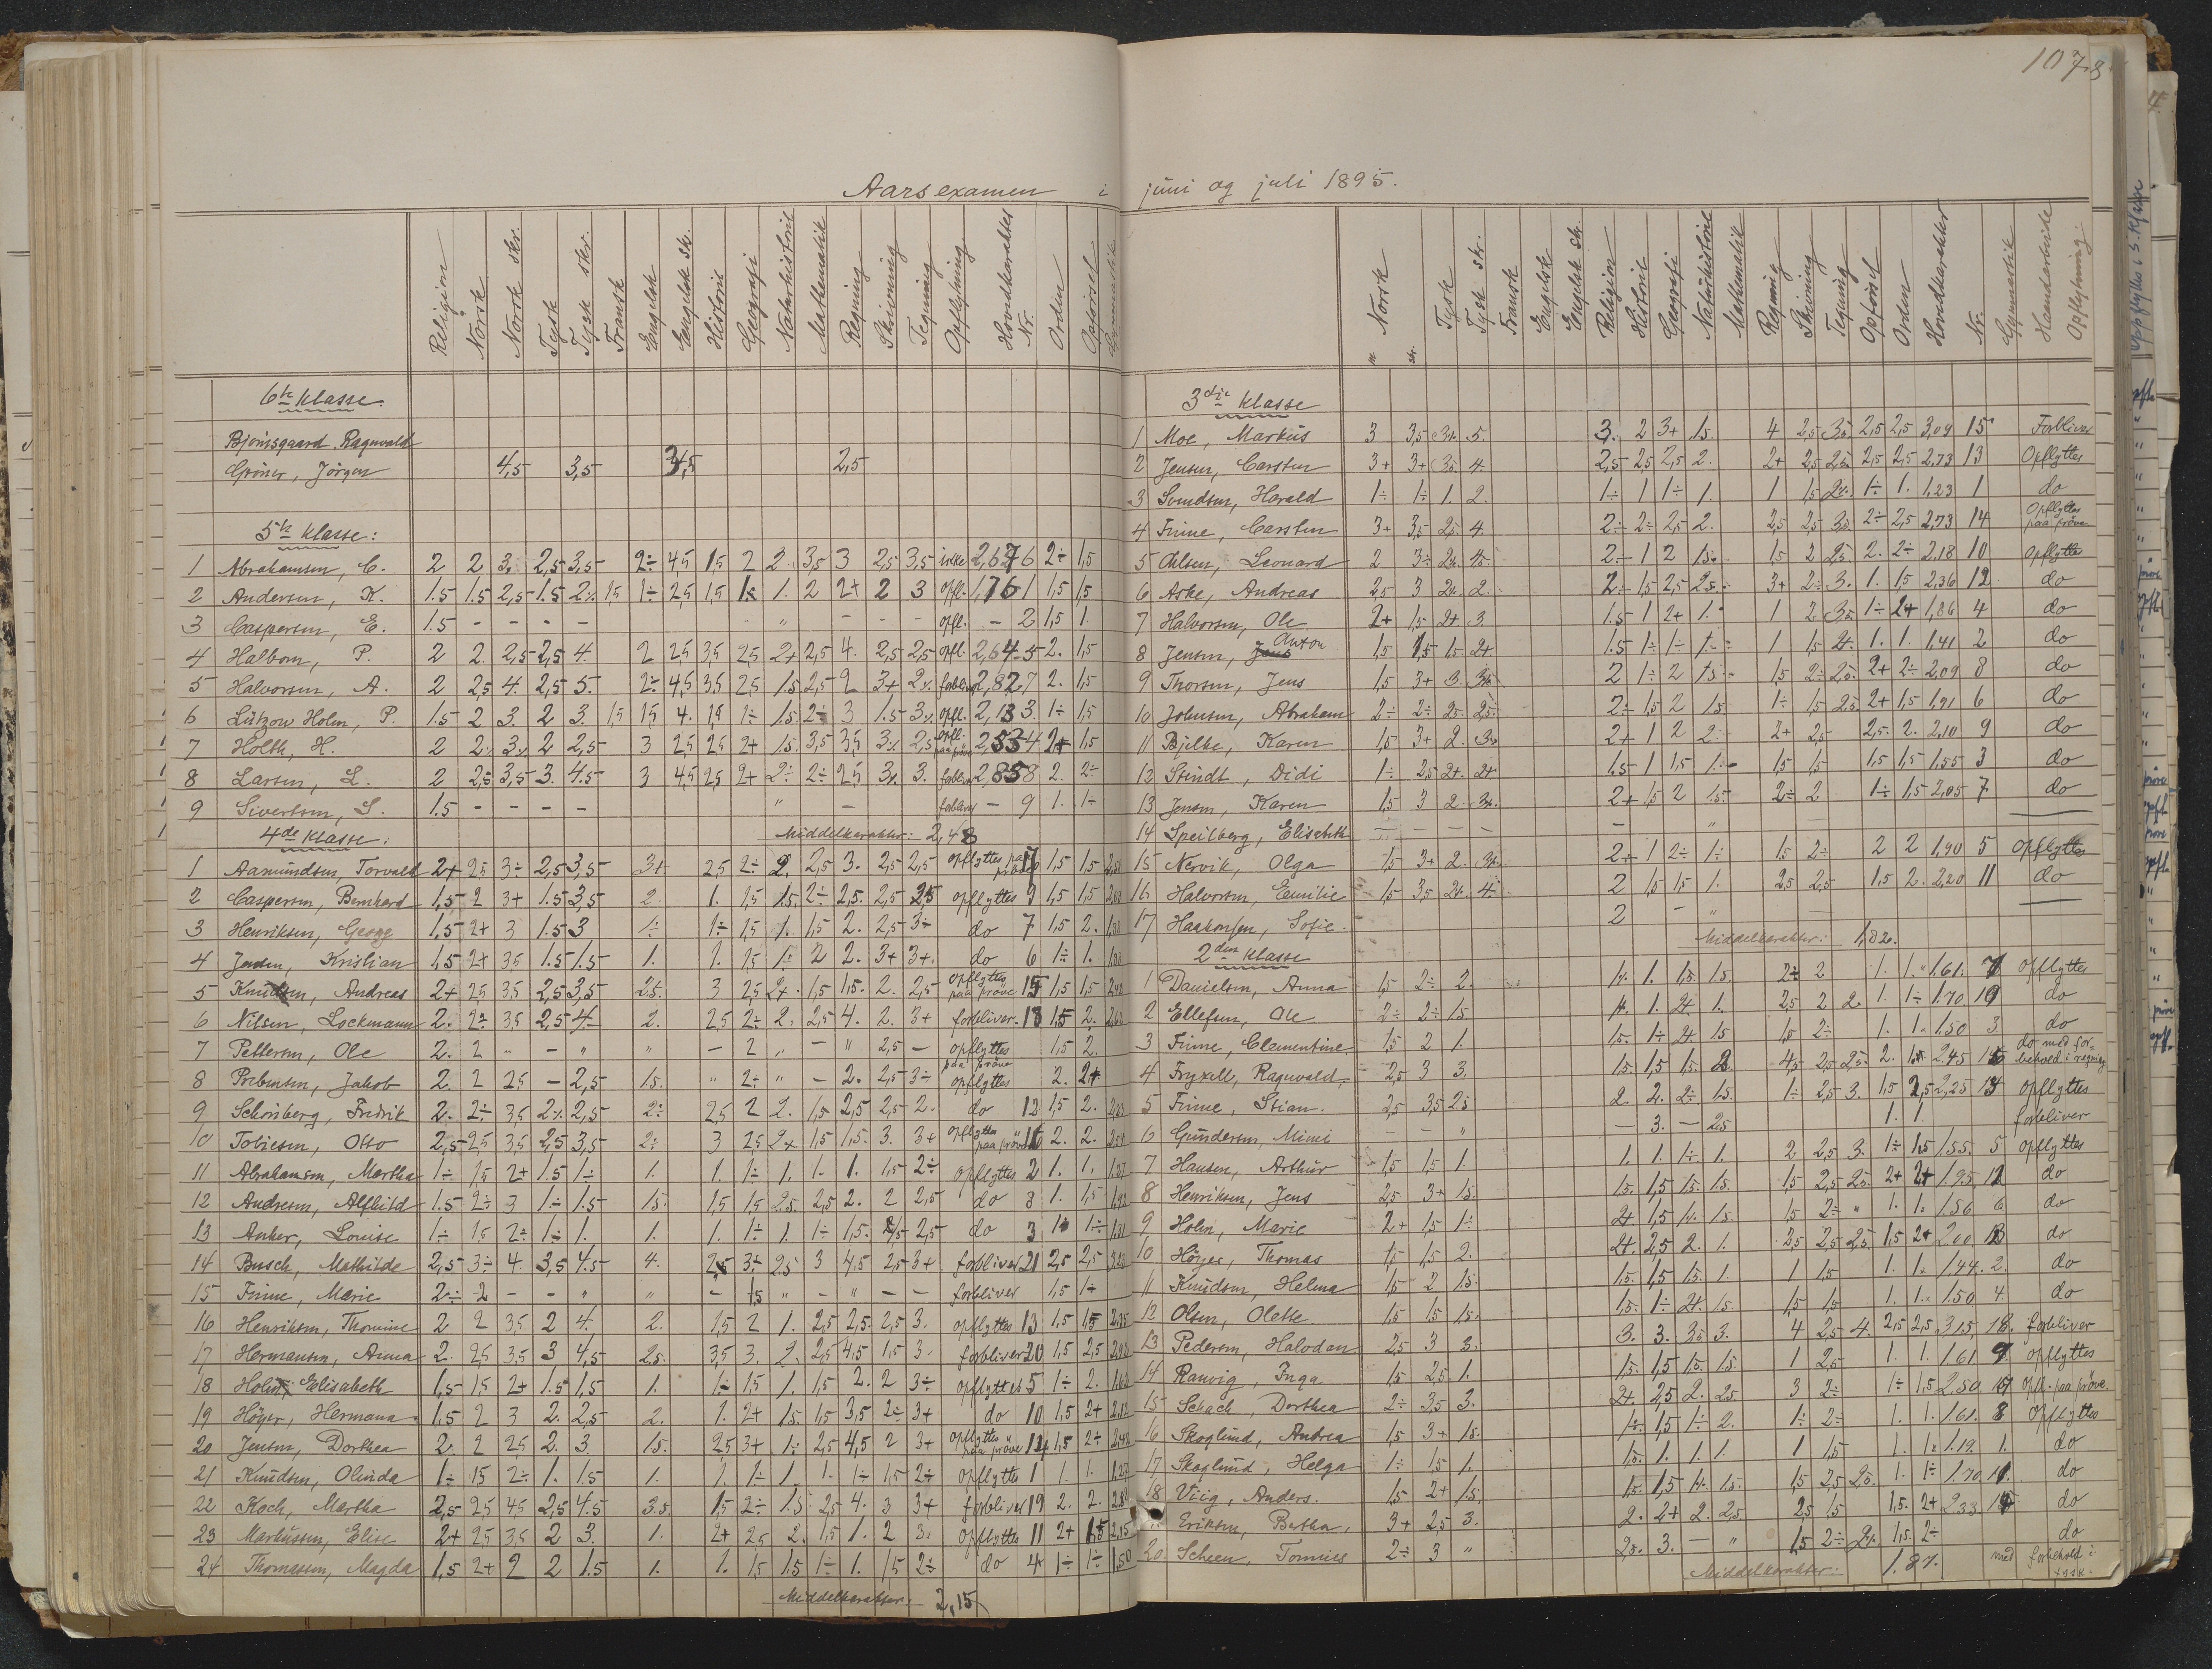 1078
Aarsexamen i juni og juli 1895.
Religion Norsk Norsk skr. Tysk Tysk skr. Fransk Engelsk Engelsk skr. Historie Geografi Naturhistorie Mathematik Regning Skrivning Tegning Opflytning Hovedkarakter Nr. Orden Opförsel Gymnastik
6te Klasse.
Bjonsgaard. Ragnvald
Gröner, Jörgen 4,5 3,5 2,5
5te Klasse:
1 Abrahamsen, C. 2 2 3. 2,5 3,5 2÷ 4,5 1,5 2 2 3,5 3 2,5 3,5 ikke 2,67 6 2÷ 1,5
2 Andersen, K. 1.5 1.5 2,5 1.5 2 1,5 1÷ 2,5 1,5 1. 1. 2 2+ 2 3 opfl. 1,76 1 1,5 1,5
3 Caspersen, E. 1.5 - - - - " - - - opfl. - 2 1,5 1.
4 Halborn, P. 2 2. 2,5 2,5 4. 2 2,5 3,5 2,5 2+ 2,5 4. 2,5 2,5 opfl. 2,64 5 2. 1,5
5 Halvorsen, A. 2 2,5 4. 2,5 5. 2÷ 4,5 3,5 2,5 1.5 2,5 2 3+ 2 forbliver 2,82 7 2. 1,5
6 Lützow Holm, P. 1.5 2 3. 2 3. 1,5 1,5 4. 1,5 1÷ 1.5 2÷ 3 1.5 3 opfl. 2,13 3. 1÷ 1,5
7 Holth, H. 2 2 3 2 2,5 3 2,5 2,5 2+ 1.5 3,5 3,5 3 2,5 opfl. paa pröve 2,53 4 2+ 1,5
8 Larsen, L. 2 2,5 3,5 3. 4.5 3 4,5 2,5 2+ 2÷ 2÷ 2,5 3 3. forbliver 2,85 8 2. 2÷
9 Sivertsen, S. 1.5 - - - - " - forbliver - 9 1. 1÷
4de Klasse: Middelkarakter: 2,48
1 Aamundsen, Torvald 2+ 2,5 3÷ 2,5 3,5 3+ 2,5 2÷ 2. 2,5 3. 2,5 2,5 opflyttes paa pröve 1,5 1,5
2 Caspersen, Bernhard 1,5 2 3+ 1.5 3,5 2. 1. 1,5 1.5 2÷ 2.5. 2,5 2,5 opflyttes 9 1,5 1,5
3 Henriksen, Georg 1,5 2+ 3 1.5 3 1÷ 1÷ 1,5 1. 1,5 2. 2,5 3÷ do 7 1,5 2.
4 Jensen, Kristian 1,5 2+ 3,5 1.5 1.5 1. 1. 1,5 1÷ 2 2. 3+ 3+. do 6 1÷ 1.
5 Knudsen, Andreas 2+ 2,5 3,5 2,5 3,5 2.5. 3 2,5 2+. 1,5 1,5. 2. 2,5 opflyttes paa pröve 15 1,5 1,5
6 Nilsen, Lockmann 2. 2÷ 3,5 2,5 4. 2. 2,5 2÷ 2. 2,5 4. 2. 3+ forbliver. 18 1,5 2.
7 Pettersen, Ole 2. 2 " - " " - 2 " - " 2,5 - opflyttes paa pröve 1,5 2.
8 Jakob 2. 2 2,5 - 2,5 1.5. " 2÷ " - 2. 2,5 3÷ opflyttes 2. 2+
9 Schönberg, Fredrik 2. 2÷ 3,5 2 2,5 2÷ 2,5 2 2. 1,5 2,5 2,5 2. do 12 1,5 2.
10 Tobiesen, Otto 2,5 2,5 3,5 2,5 3,5 2÷ 3 2,5 2+ 1,5 1,5. 3. 3+ opflyttes paa pröve 16 2. 2.
11 Abrahamsen, Martha 1÷ 1,5 2+ 1.5 1÷ 1. 1. 1÷ 1. 1. 1. 1,5 2÷ opflyttes 2 1. 1.
12 Andresen, Alfhild 1.5 2÷ 3 1÷ 1.5 1.5. 1,5 1,5 2.5 2,5 2. 2 2,5 do 8 1. 1,5
13 Anker, Louise 1÷ 1,5 2÷ 1÷ 1. 1. 1. 1÷ 1. 1÷ 1,5. 2,5 do 3 1÷
14 Busch, Mathilde 2,5 3÷ 4. 3,5 4.5 4. 2,5 3÷ 2.5 3 4,5 2,5 3+ forbliver 21 2,5 2,5
15 Finne, Marie 2÷ 2 - - " " - 1,5 " - " - - forbliver 1,5 1+
16 Henriksen, Thomine 2 2 3,5 2 4. 2. 1,5 2 1. 2,5 2,5. 2,5 3. opflyttes 13 1,5 1,5
17 Hermansen, Anna 2. 2,5 3,5 3 4,5 2.5. 3,5 3. 2. 2,5 4,5 1,5 3. forbliver 20 1,5 2,5
18 Holm, Elisabeth 1,5 1,5 2+ 1.5 1,5 1. 1÷ 1,5 1. 1,5 2. 2 3÷ opflyttes 5 1÷ 2.
19 Höyer, Hermana 1.5 2 3 2. 2,5 2. 1. 2+ 1.5. 1,5 3,5 2÷ 3+ do 10 1,5 2+
20 Jensen, Dorthea 2. 2 2,5 2. 3. 1.5. 2,5 3+ 1÷ 2,5 4,5 2 3+ opflyttes paa pröve 14 1,5 2÷
21 Knudsen, Olinda 1÷ 1,5 2÷ 1. 1.5 1. 1. 1÷ 1. 1. 1÷ 1,5 2÷ opflyttes 1 1. 1.
22 Koch, Martha 2,5 2,5 4,5 2,5 4.5 3.5. 1,5 2÷ 1.5 2,5 4. 3 3+ forbliver 19 2. 2.
23 Markussen, Elise 2+ 2,5 3,5 2 3. 1. 2+ 2,5 2. 1,5 1. 2 3. opflyttes 11 2+ 1,5 2,15
24 Thomassen, Magda 1,5 2+ 2 2 1.5 1. 1. 1,5 1.5 1÷ 1. 1,5 2÷ do 4 1÷ 1÷ 1,50
Middelkarakter: 2,15
Norsk m skr. Tysk Tysk skr. Fransk Engelsk Engelsk skr. Religion Historie Geografi Naturhistorie Mathematik Regning Skrivning Tegning Opförsel Orden Hovedkarakter Nr. Gymnastik Haandarbeide Opflytning.
3die Klasse
1 Moe, Markus 3 3,5 5. 3. 2 3+ 1.5. 4 2,5 3,5 2,5 2,5 3,09 15 Forbliver
2 Jensen, Carsten 3+ 3+ 4. 2,5 2,5 2,5 2. 2+ 2,5 2,5 2,5 2,5 2,73 13 Opflyttes
3 Svendsen, Harald 1÷ 1÷ 1. 2. 1÷ 1 1÷ 1. 1 1,5 1÷ 1. 1,23 1 do
4 Finne, Carsten 3+ 3,5 2,5. 4. 2÷ 2÷ 2,5 2. 2,5 2,5 3,5 2÷ 2,5 2,73 14 Opflyttes paa pröve
5 Ohlsen, Leonard 2 3÷ 4.5 2÷ 1 2 1.5. 1,5 2 2,5 2. 2÷ 2,18 10 Opflyttes
6 Aske, Andreas 2,5 3 2. 2÷ 1,5 2,5 2.5. 3+ 2÷ 3. 1. 1,5 2,36 12 do
7 Halvorsen, Ole 2+ 1,5 2+ 3 1.5 1 2+ 1. 1 2 3,5 1÷ 2+ 1,86 4 do
8 Jensen, Anton 1,5 1,5 1.5 2+ 1.5 1÷ 1÷ 1. 1 1,5 2+. 1. 1. 1,41 2 do
9 Thorsen, Jens 1,5 3+ 3. 2 1÷ 2 1.5. 1,5 2÷ 2,5. 2+ 2÷ 2,09 8 do
10 Johnsen, Abraham 2÷ 2÷ 2.5. 2,5. 2÷ 1,5 2 1.5. 1÷ 1,5 2,5 2+ 1,5 1,91 6 do
11 Bjelke, Karen 1,5 3+ 2. 2+ 1 2 2. 2+ 2,5 2,5. 2. 2,10 9 do
12 Stindt, Didi 1÷ 2,5 2+. 2+ 1.5 1 1,5 1. 1,5 1,5 1,5 1,5 1,55 3 do
13 Jensen, Karen 1,5 3 2. 2+ 1,5 2 1.5. 2÷ 2 1÷ 1,5 2,05 7 do
14 Speilberg, Elisabeth - - - - - " -
15 Nervik, Olga 1,5 3+ 2. 2÷ 1 2÷ 1÷ 1,5 2÷ 2 2 1,90 5 opflyttes
16 Halvorsen, Emilie 1,5 3,5 4. 2 1,5 1,5 1. 2,5 2,5 1,5 2. 2,20 11 do
17 Haakonsen, Sofie. 2 - " -
Middelkarakter: 1,82.
2den Klasse
1 Danielsen, Anna 1,5 2÷ 2. 1. 1,5. 1.5. 2÷ 2 1. 1. 1,61. 7 opflyttes
2 Ellefsen, Ole 2÷ 2÷ 1.5 1. 2+. 1. 2,5 2 2. 1. 1÷ 1,70 do
3 Finne, Clementine 1,5 2 1. 1.5. 1÷ 2+. 1.5 1,5 2÷ 1. 1. 1.50 3 do
4 Fryxell, Ragnvald 2,5 3 3. 1.5. 1,5 1,5. 2. 4,5 2,5 2,5. 2. 1,5. 2,45 do med forbehold i regning
5 Finne, Stian. 2,5 3,5 2.5 2. 2. 2÷ 1.5. 1÷ 2,5 3. 1,5 2,5 2,25 opflyttes
6 Gundersen, Mimi - - " - 3. - 2,5 1. 1. forbliver
7 Hansen, Arthur 1,5 1,5 1. 1. 1. 1÷ 1. 2 2,5 3. 1÷ 1,5 1.55. 5 opflyttes
8 Henriksen, Jens 2,5 3+ 1.5. 1.5. 1,5 1,5. 1.5. 1,5 2,5 2,5. 2+ 2+ 1.95 12 do
9 Holm, Marie 2+ 1,5 1÷ 2+ 1,5 1.5 1,5 2÷ " 1. 1. 1.56 6 do
10 Höyer, Thomas 1,5 1,5 2. 2+. 2,5 2. 1. 2,5 2,5 2,5. 1,5 2+ 2.00 13 do
11 Knudsen, Helma 1,5 2 1.5. 1.5. 1,5 1.5. 1. 1 1,5 1. 1. 1.44. 2. do
12 Olsen, Olette 1,5 1,5 1.5. 1.5. 1÷ 2+. 1.5. 1,5 1,5 1. 1. 1.50 4 do
13 Pedersen, Halvdan 2,5 3 3. 3. 3. 3,5 3. 4 2,5 4. 2,5 2,5 3,15 18. forbliver
14 Ranvig, Inga 1,5 2,5 1. 1.5. 1,5 1.5. 1.5 1 2,5 1. 1. 1.61 9. opflyttes
15 Schach, Dorthea 2÷ 3,5 3. 2+. 2,5 2. 2,5 3 2÷ 1÷ 1,5 2.50 opfl. paa pröve.
16 Skoglund, Andrea 1,5 3+ 1.5. 1÷ 1,5 1÷ 2. 1÷ 2÷ 1. 1. 1.61. 8 opflyttes
17 Skoglund, Helga 1÷ 1,5 1. 1.5. 1. 1. 1. 1 1,5 1. 1. 1.19. 1. do
18 Viig, Anders. 1,5 2+ 1.5. 1.5. 1,5 1.5. 1,5 2,5 2,5. 1. 1÷ 1.70 do
Eriksen, Bertha. 3+ 2,5 3. 2. 2+ 2. 2,5 2,5 1,5 1,5. 2+ 2.33 do
20. Scheen, Tonnies 2÷ 3 " 2,5. 3. - " 1,5 2÷ 1,5. 2÷ do med forbehold i tysk.
Middelkarakter: 1.87.